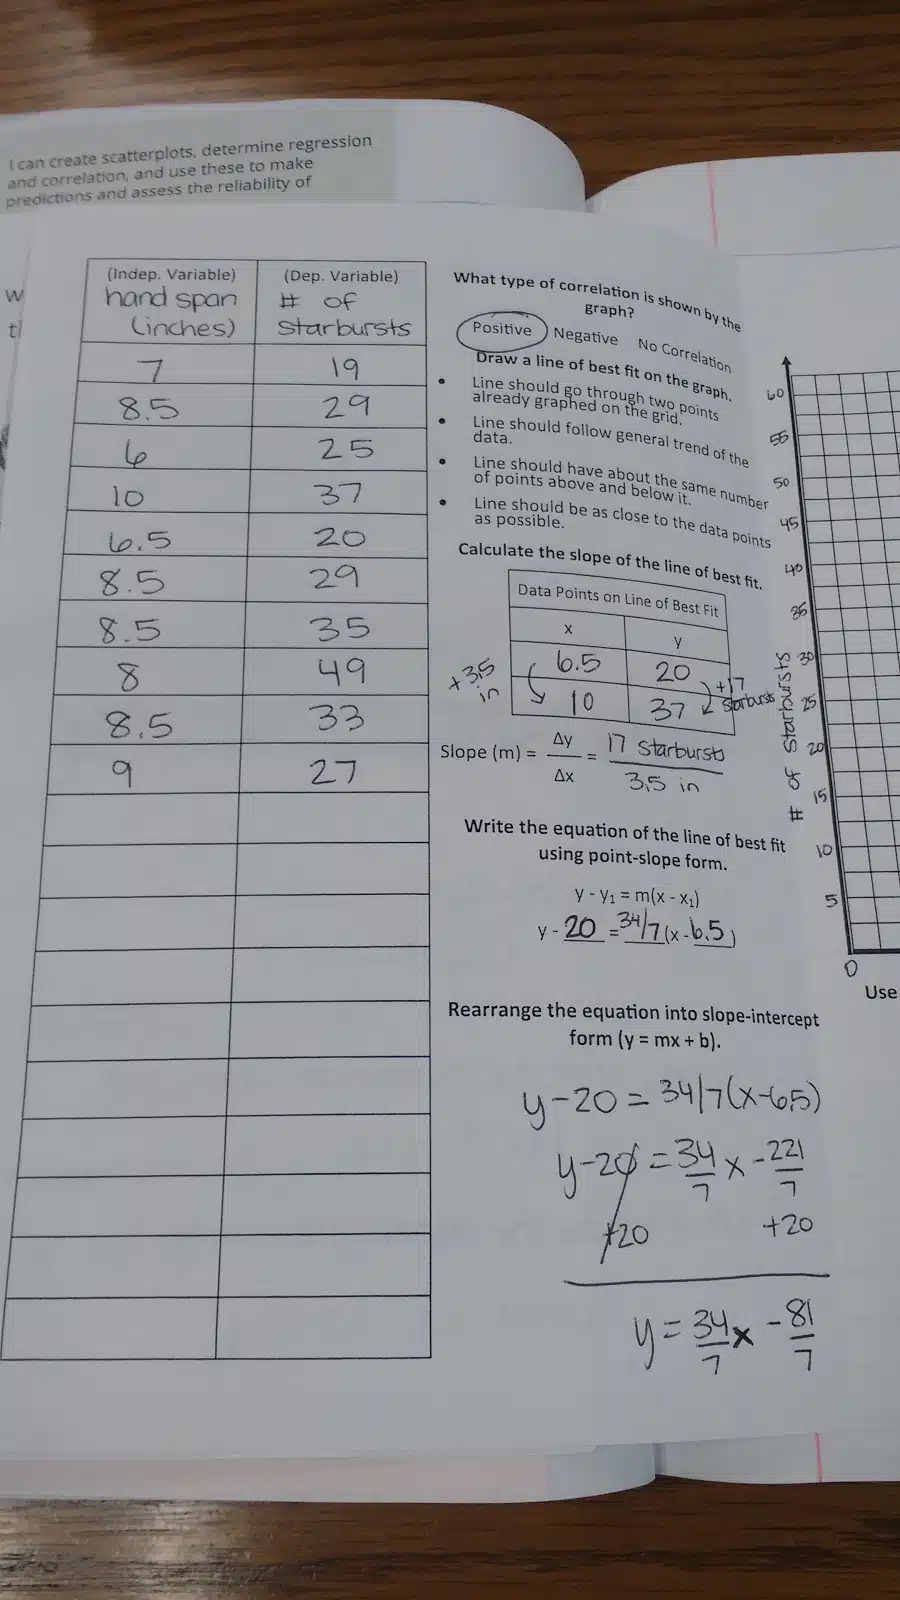 I can create scatterplots, determine regression
and correlation, and use these to make
predictions and assess the reliability of
W
t
(Indep. Variable) (Dep. Variable)
hand span # of
(inches) Starbursts
7 19
8.5 29
6 25
10 37
6.5 20
8.5 29
8.5 35
8 49
8.5 33
9 27
What type of correlation is shown by the
graph?
Positive Negative No Correlation
Draw a line of best fit on the graph.
• Line should go through two points
already graphed on the grid.
• Line should follow general trend of the
data.
• Line should have about the same number
of points above and below it.
• Line should be as close to the data points
as possible.
Calculate the slope of the line of best fit.
Data Points on Line of Best Fit
x y
6.5 20
10 37
+3.5
in
+17
Starbursts
Slope (m) = Δy/Δx = 17 Starbursts/3.5 in
Write the equation of the line of best fit
using point-slope form.
y - y₁ = m(x - x₁)
y - 20 = 34/7(x - 6.5)
Rearrange the equation into slope-intercept
form (y = mx + b).
y-20 = 34/7(x-6.5)
y-20 = 34/7 x - 221/7
+20 +20
y = 34/7 x - 81/7
60
55
50
45
40
35
30
25
20
15
10
5
0
# of Starbursts
Use